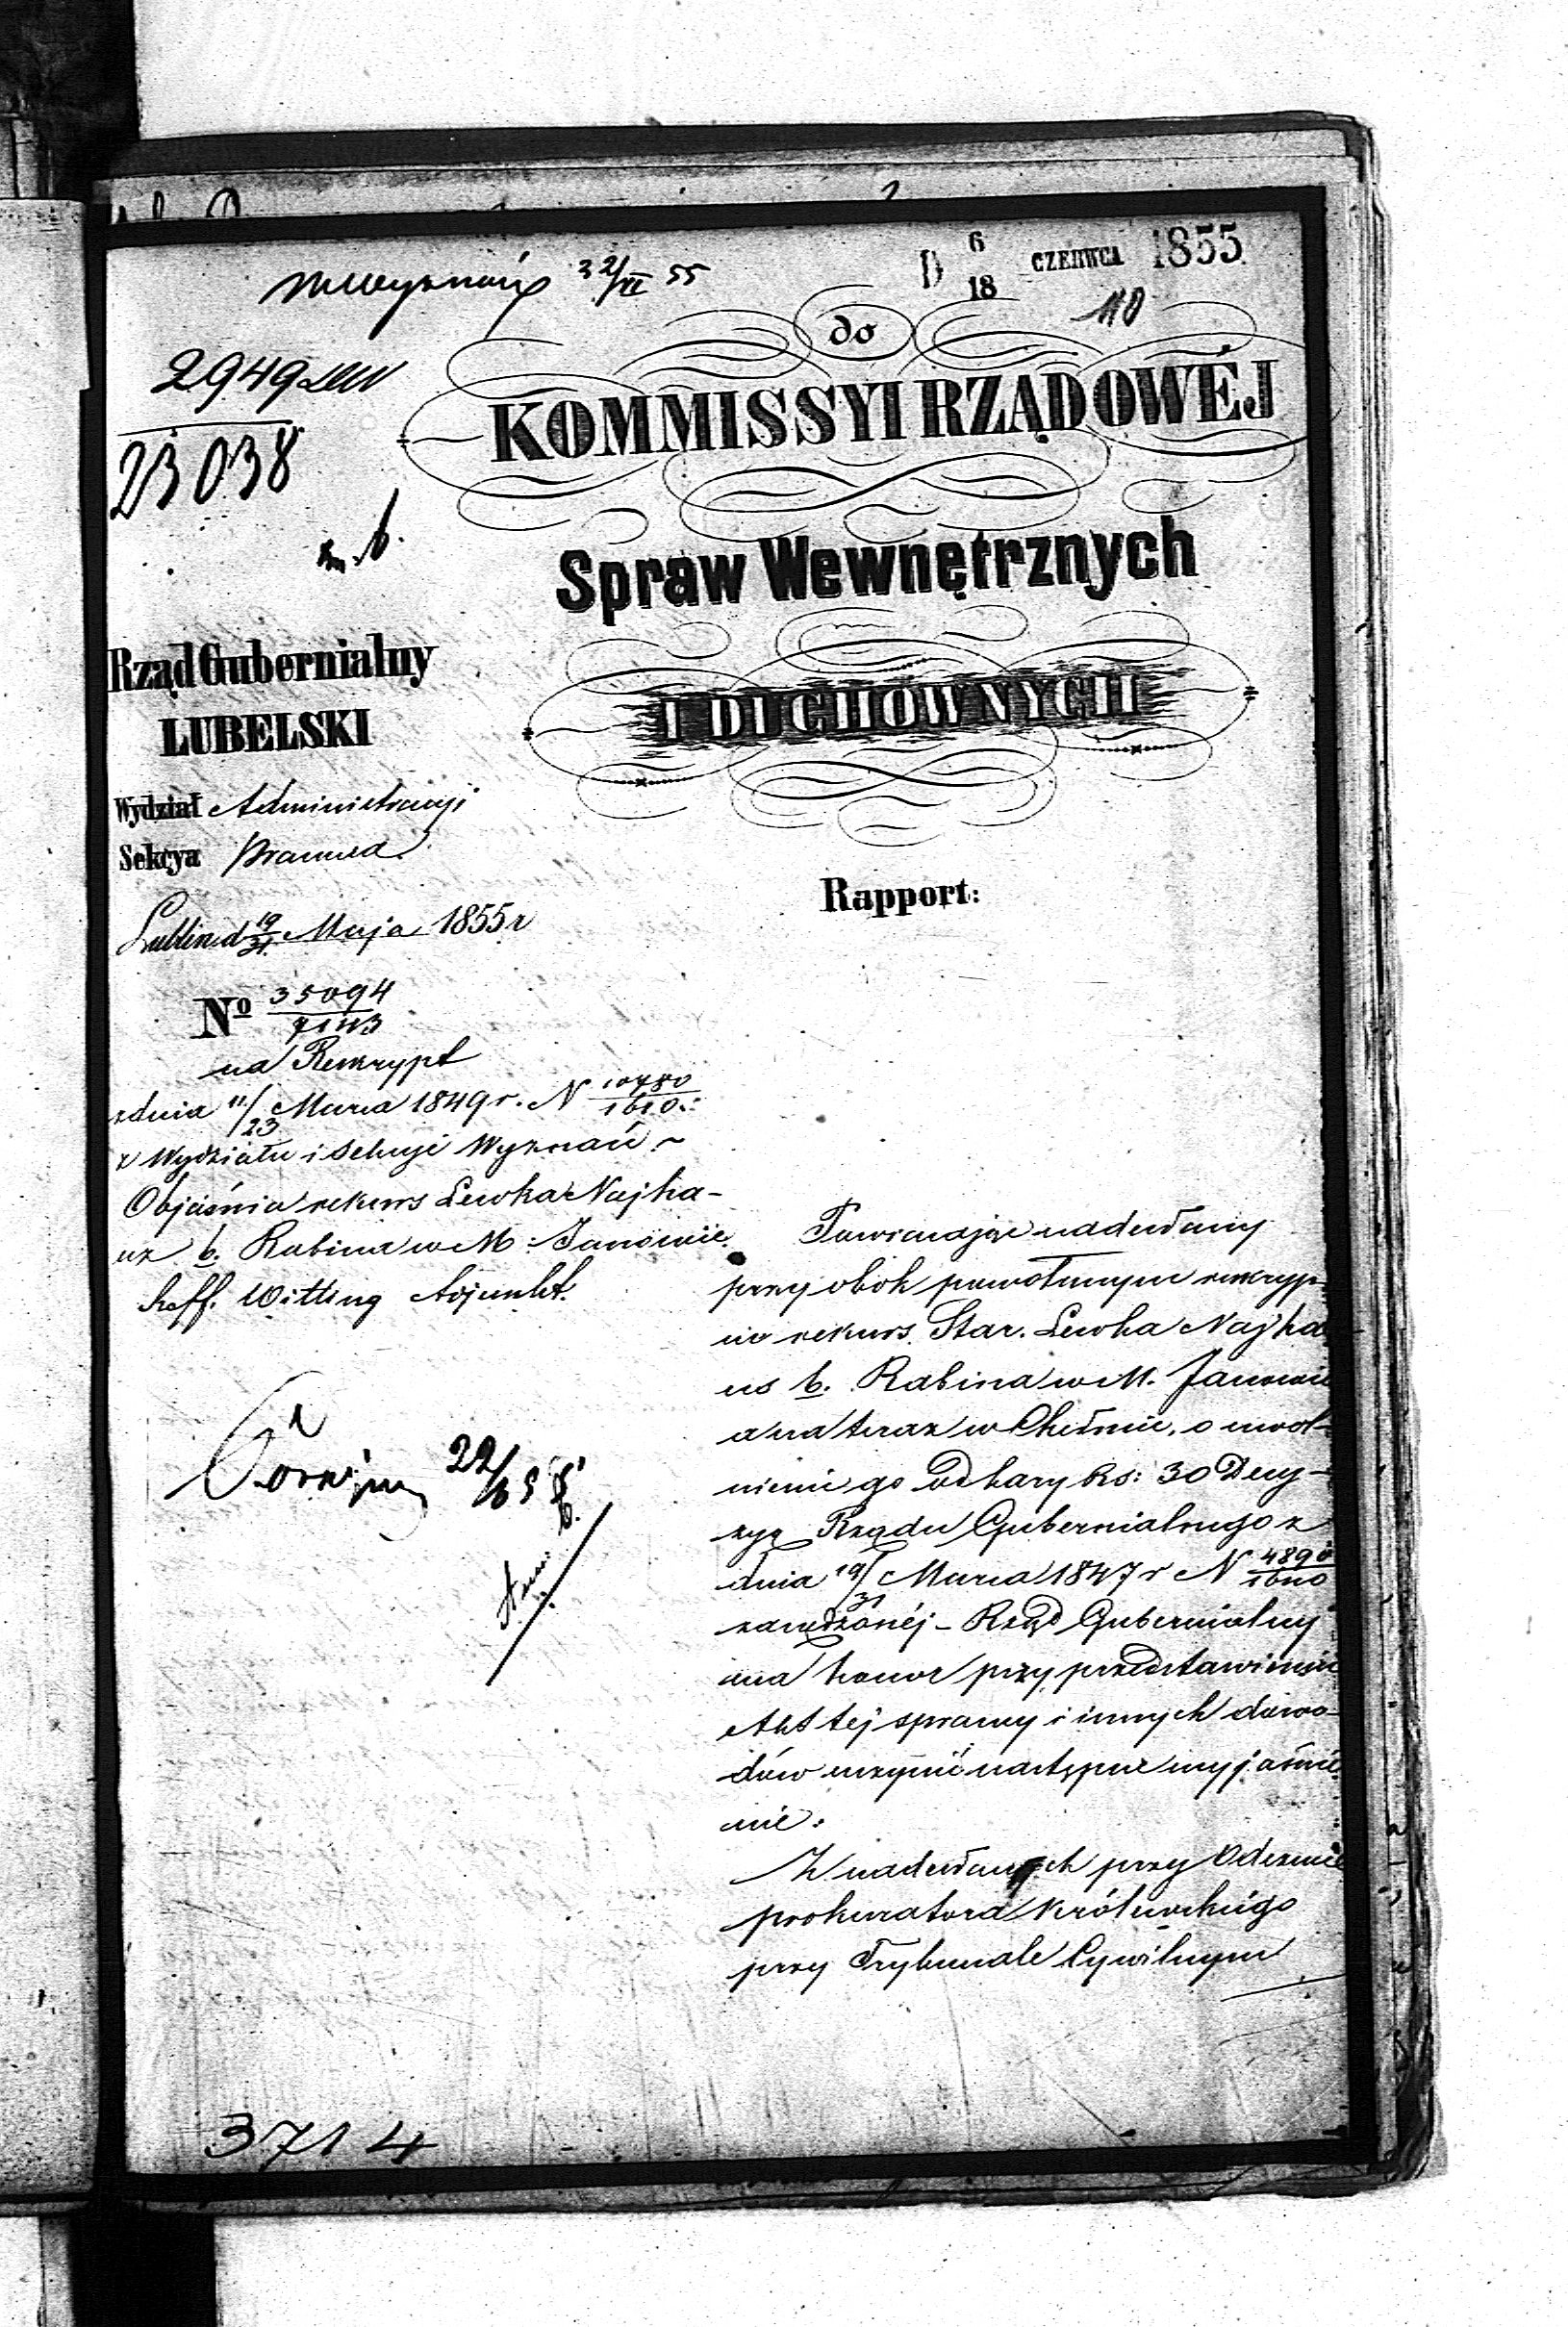 D 6/18 CZERWCA 1855
32/VI 55
110
do
2949
23038
KOMMISSYI RZĄDOWÉJ
Spraw Wewnętrznych
I DUCHOWNYCH
Rząd Gubernialny
LUBELSKI
Wydział Administracyji
Sekcya Prawna
Rapport:
Lublin d 19/31 Maja 1855 r
Nº 35094/7143
na Reskrypt
z dnia 11/23 Marca 1849 r. N 10480/1610.
z Wydziału i Sekcyi Wyznań
Objaśnia rekurs Lewka Najha-
uz b. Rabina w M: Janowie
Szeff. Witting Adjunkt.
22/6 55
Zawracając nadesłany
przy obok powołanym reskryp-
cie rekurs Star. Lewka Najha-
us b. Rabina w M. Janowie
a na teraz w Chełmie, o uwol-
nienie go od kary Rs: 30 Decy-
zyą Rządu Gubernialnego z
dnia 19/31 Marca 1847 r N 4890/1610
zarządzonéj – Rząd Gubernialny
ma honor przy przedstawieniu
Akt téj sprawy i innych dowo-
dów uczynić następne wyjaśnie-
nie:
Z nadesłanych przy Odezwie
prokuratora Królewskiego
przy Trybunale Cywilnym
3714